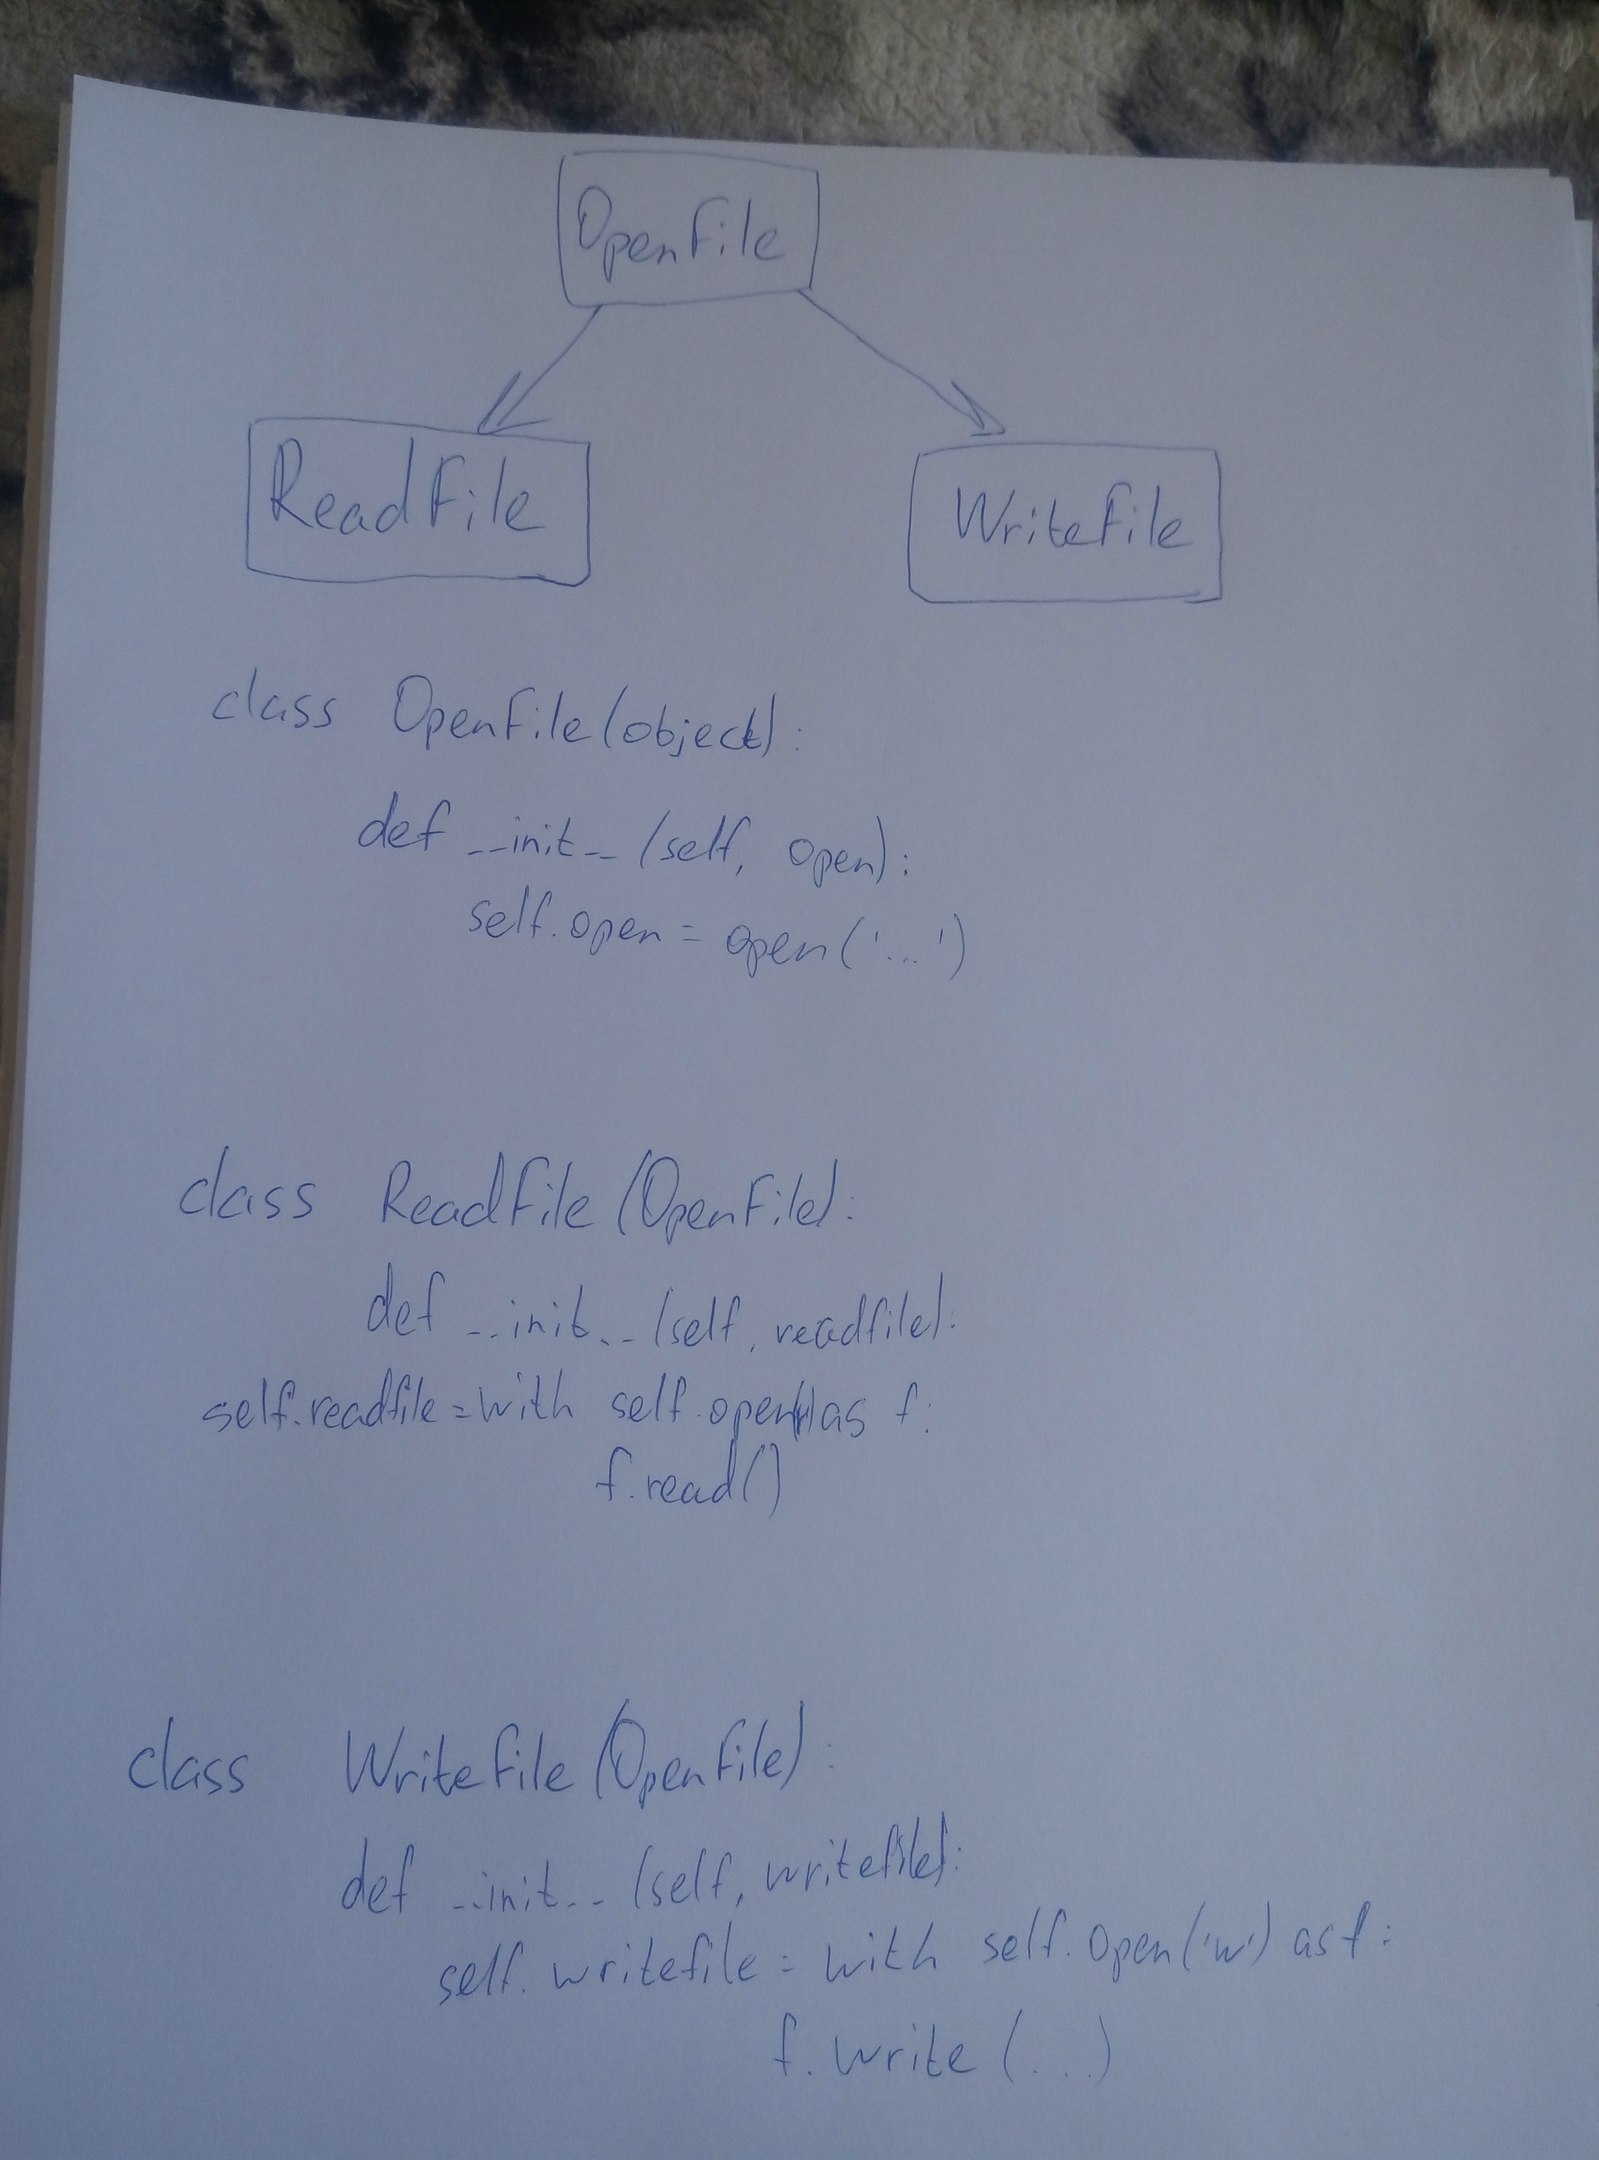 OpenFile
ReadFile
WriteFile
class OpenFile(object):
def __init__(self, open):
self.open = open('...')
class ReadFile(OpenFile):
def __init__(self, readfile):
self.readfile = with self.open as f:
f.read()
class WriteFile(OpenFile):
def __init__(self, writefile):
self.writefile = with self.open('w') as f:
f.write(...)